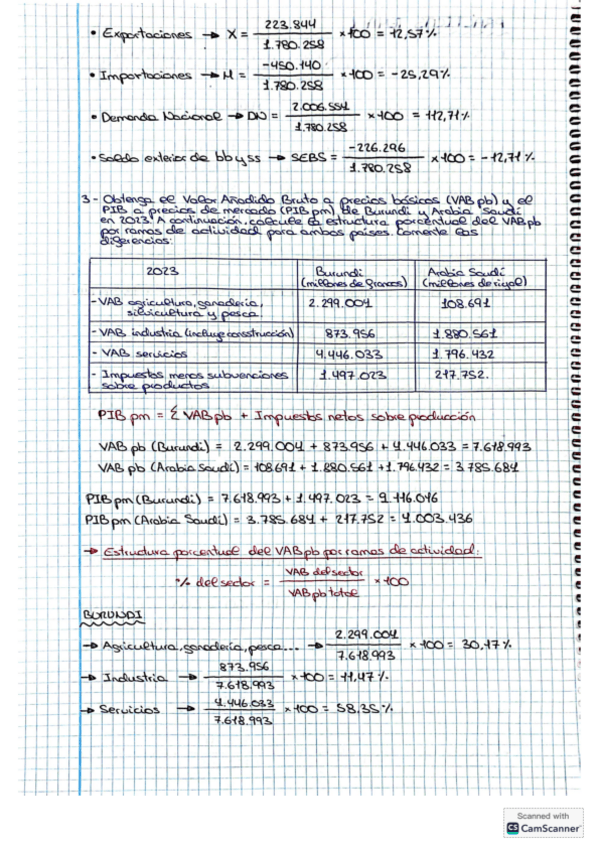 • Exportaciones → X = 223.844 / 1.780.258 × 100 = 12,57%
• Importaciones → M = -450.140 / 1.780.258 × 100 = -25,29%
• Demanda Nacional → DN = 2.006.554 / 1.780.258 × 100 = 112,71%
• Saldo exterior de bb y ss → SEBS = -226.296 / 1.780.258 × 100 = -12,71%
3- Obtenga el Valor Añadido Bruto a precios básicos (VAB pb) y el
PIB a precios de mercado (PIB pm) de Burundi y Arabia Saudí
en 2023. A continuación, calcule la estructura porcentual del VAB pb
por ramas de actividad para ambos países. Comente las
diferencias:
2023 Burundi (millones de francos) Arabia Saudí (millones de riyal)
- VAB agricultura, ganadería, silvicultura y pesca 2.299.004 108.691
- VAB industria (incluye construcción) 873.956 1.880.561
- VAB servicios 4.446.033 1.796.432
- Impuestos menos subvenciones sobre productos 1.497.023 217.752.
PIB pm = Σ VAB pb + Impuestos netos sobre producción
VAB pb (Burundi) = 2.299.004 + 873.956 + 4.446.033 = 7.618.993
VAB pb (Arabia Saudí) = 108.691 + 1.880.561 + 1.796.432 = 3.785.684
PIB pm (Burundi) = 7.618.993 + 1.497.023 = 9.116.016
PIB pm (Arabia Saudí) = 3.785.684 + 217.752 = 4.003.436
→ Estructura porcentual del VAB pb por ramas de actividad:
% del sector = VAB del sector / VAB pb total × 100
BURUNDI
→ Agricultura, ganadería, pesca... → 2.299.004 / 7.618.993 × 100 = 30,17%
→ Industria → 873.956 / 7.618.993 × 100 = 11,47%
→ Servicios → 4.446.033 / 7.618.993 × 100 = 58,35%
Scanned with
CS CamScanner